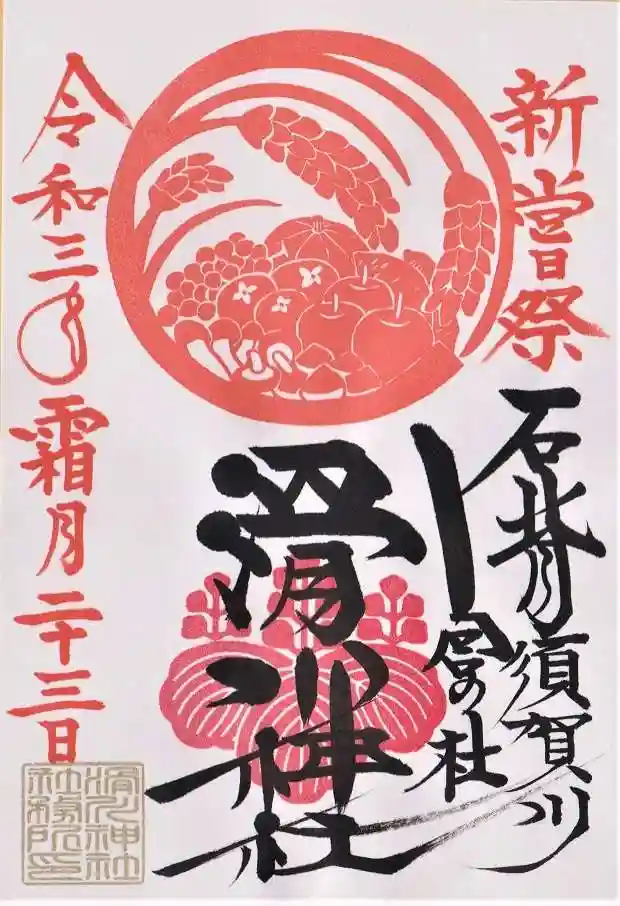 新嘗祭
石背須賀川
宮の杜
滑川神社
令和三年霜月二十三日
滑川神社
社務所印